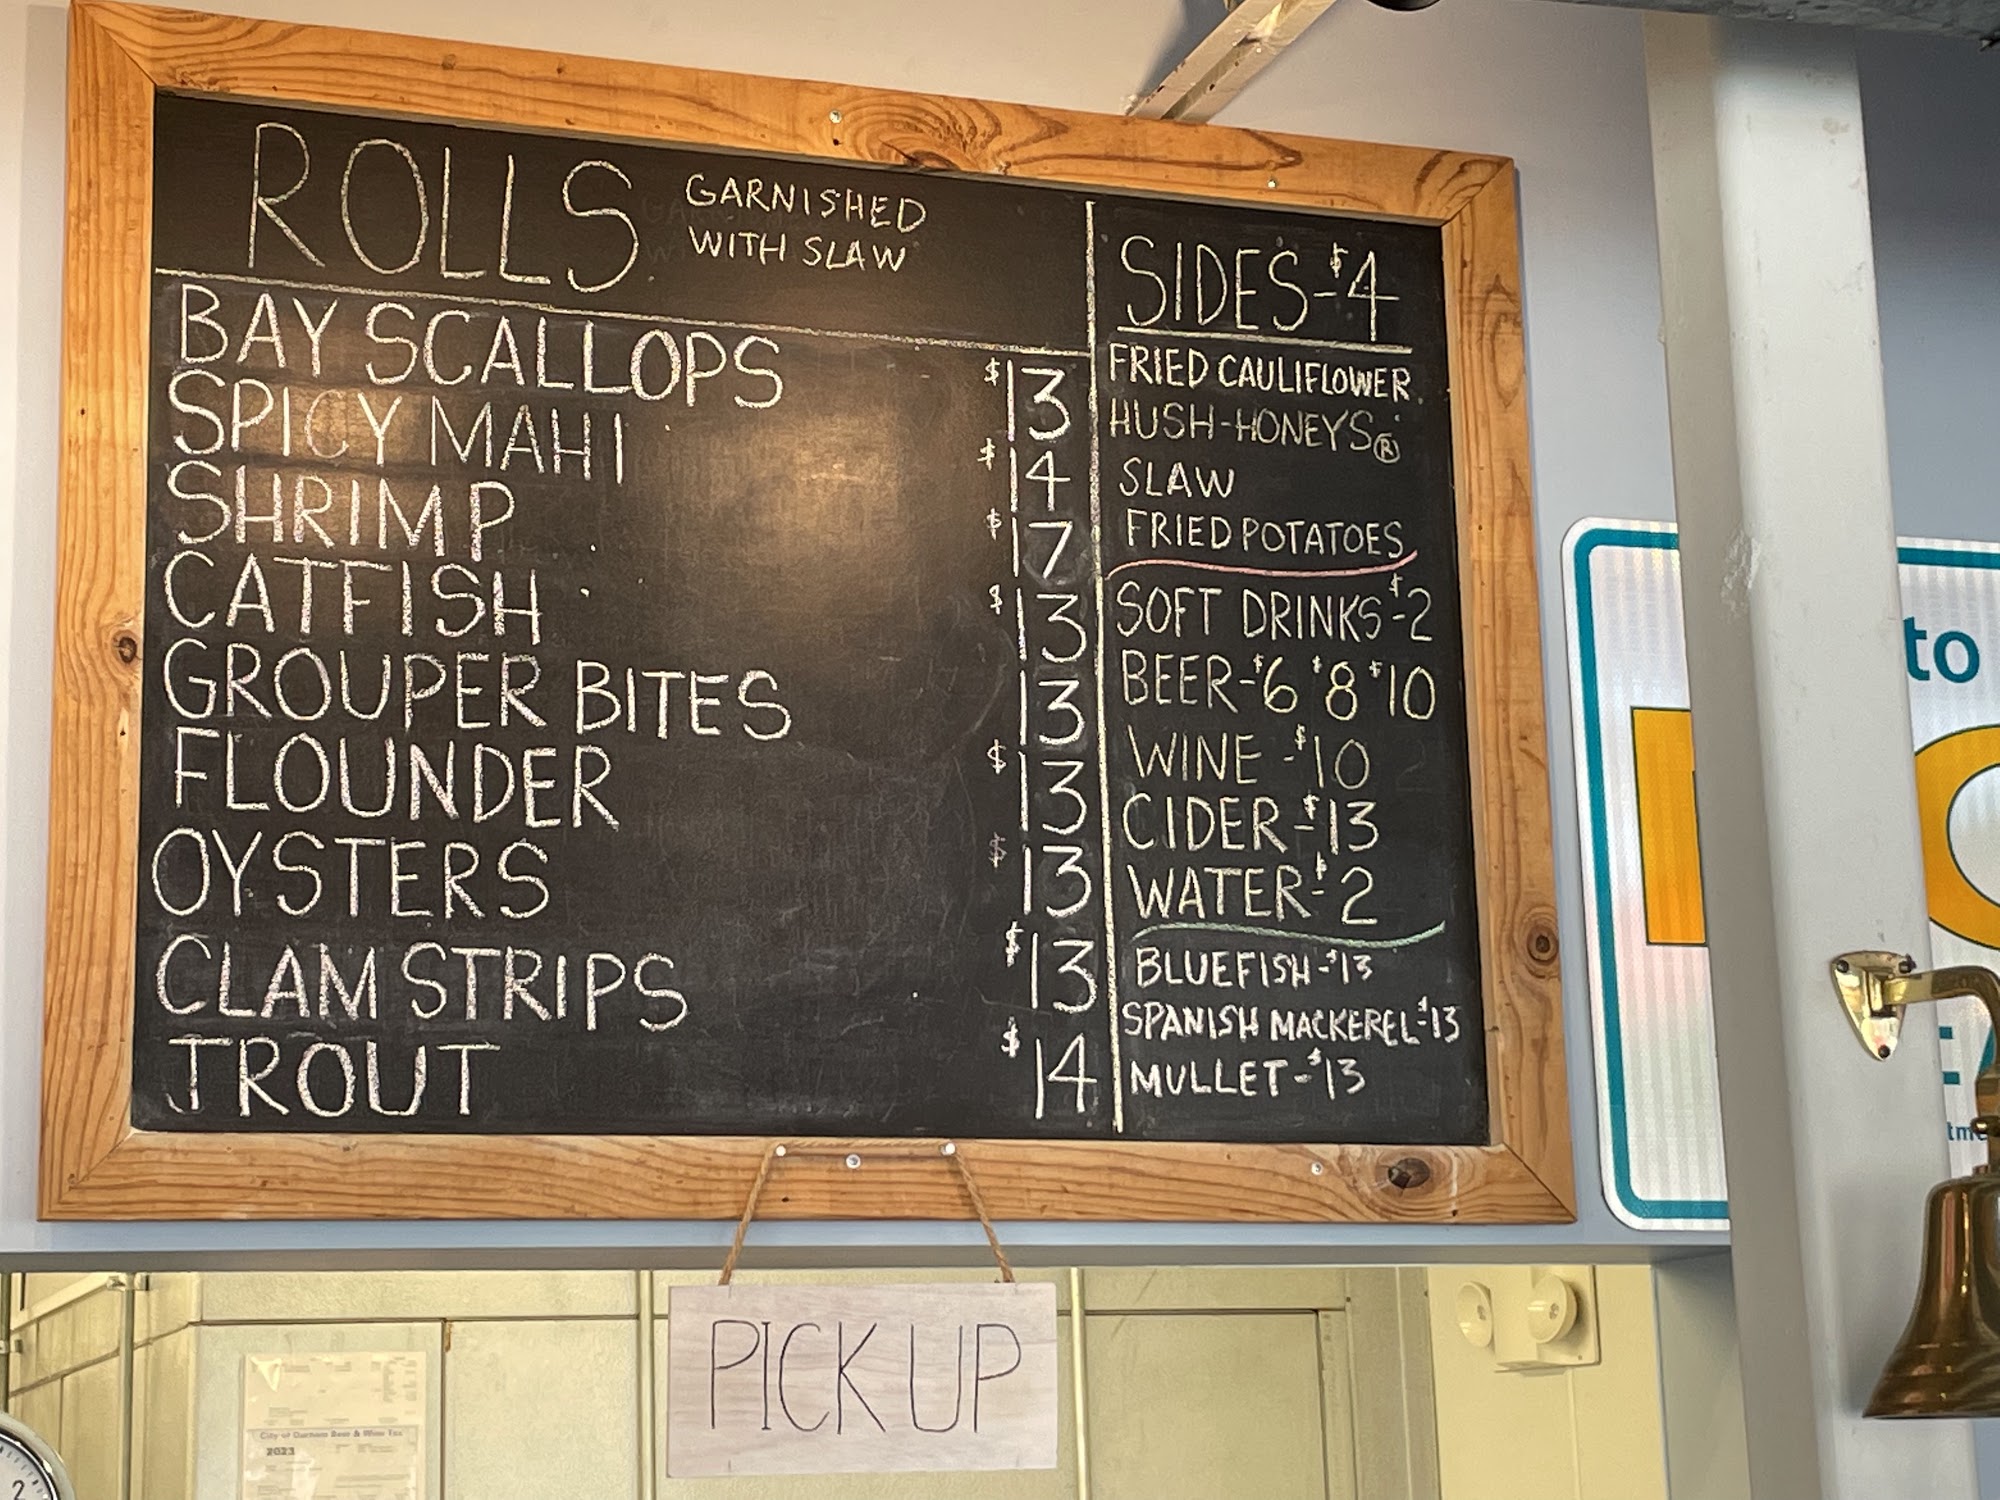 ROLLS
GARNISHED
WITH SLAW
BAY SCALLOPS $13
SPICY MAHI $14
SHRIMP $17
CATFISH $13
GROUPER BITES 13
FLOUNDER $13
OYSTERS $13
CLAM STRIPS $13
TROUT $14
SIDES-$4
FRIED CAULIFLOWER
HUSH-HONEYS®
SLAW
FRIED POTATOES
SOFT DRINKS-$2
BEER-$6 $8 $10
WINE-$10
CIDER-$13
WATER-$2
BLUEFISH-$13
SPANISH MACKEREL-$13
MULLET-$13
to
PICK UP
City of Durham Beer & Wine Tax
2023
2